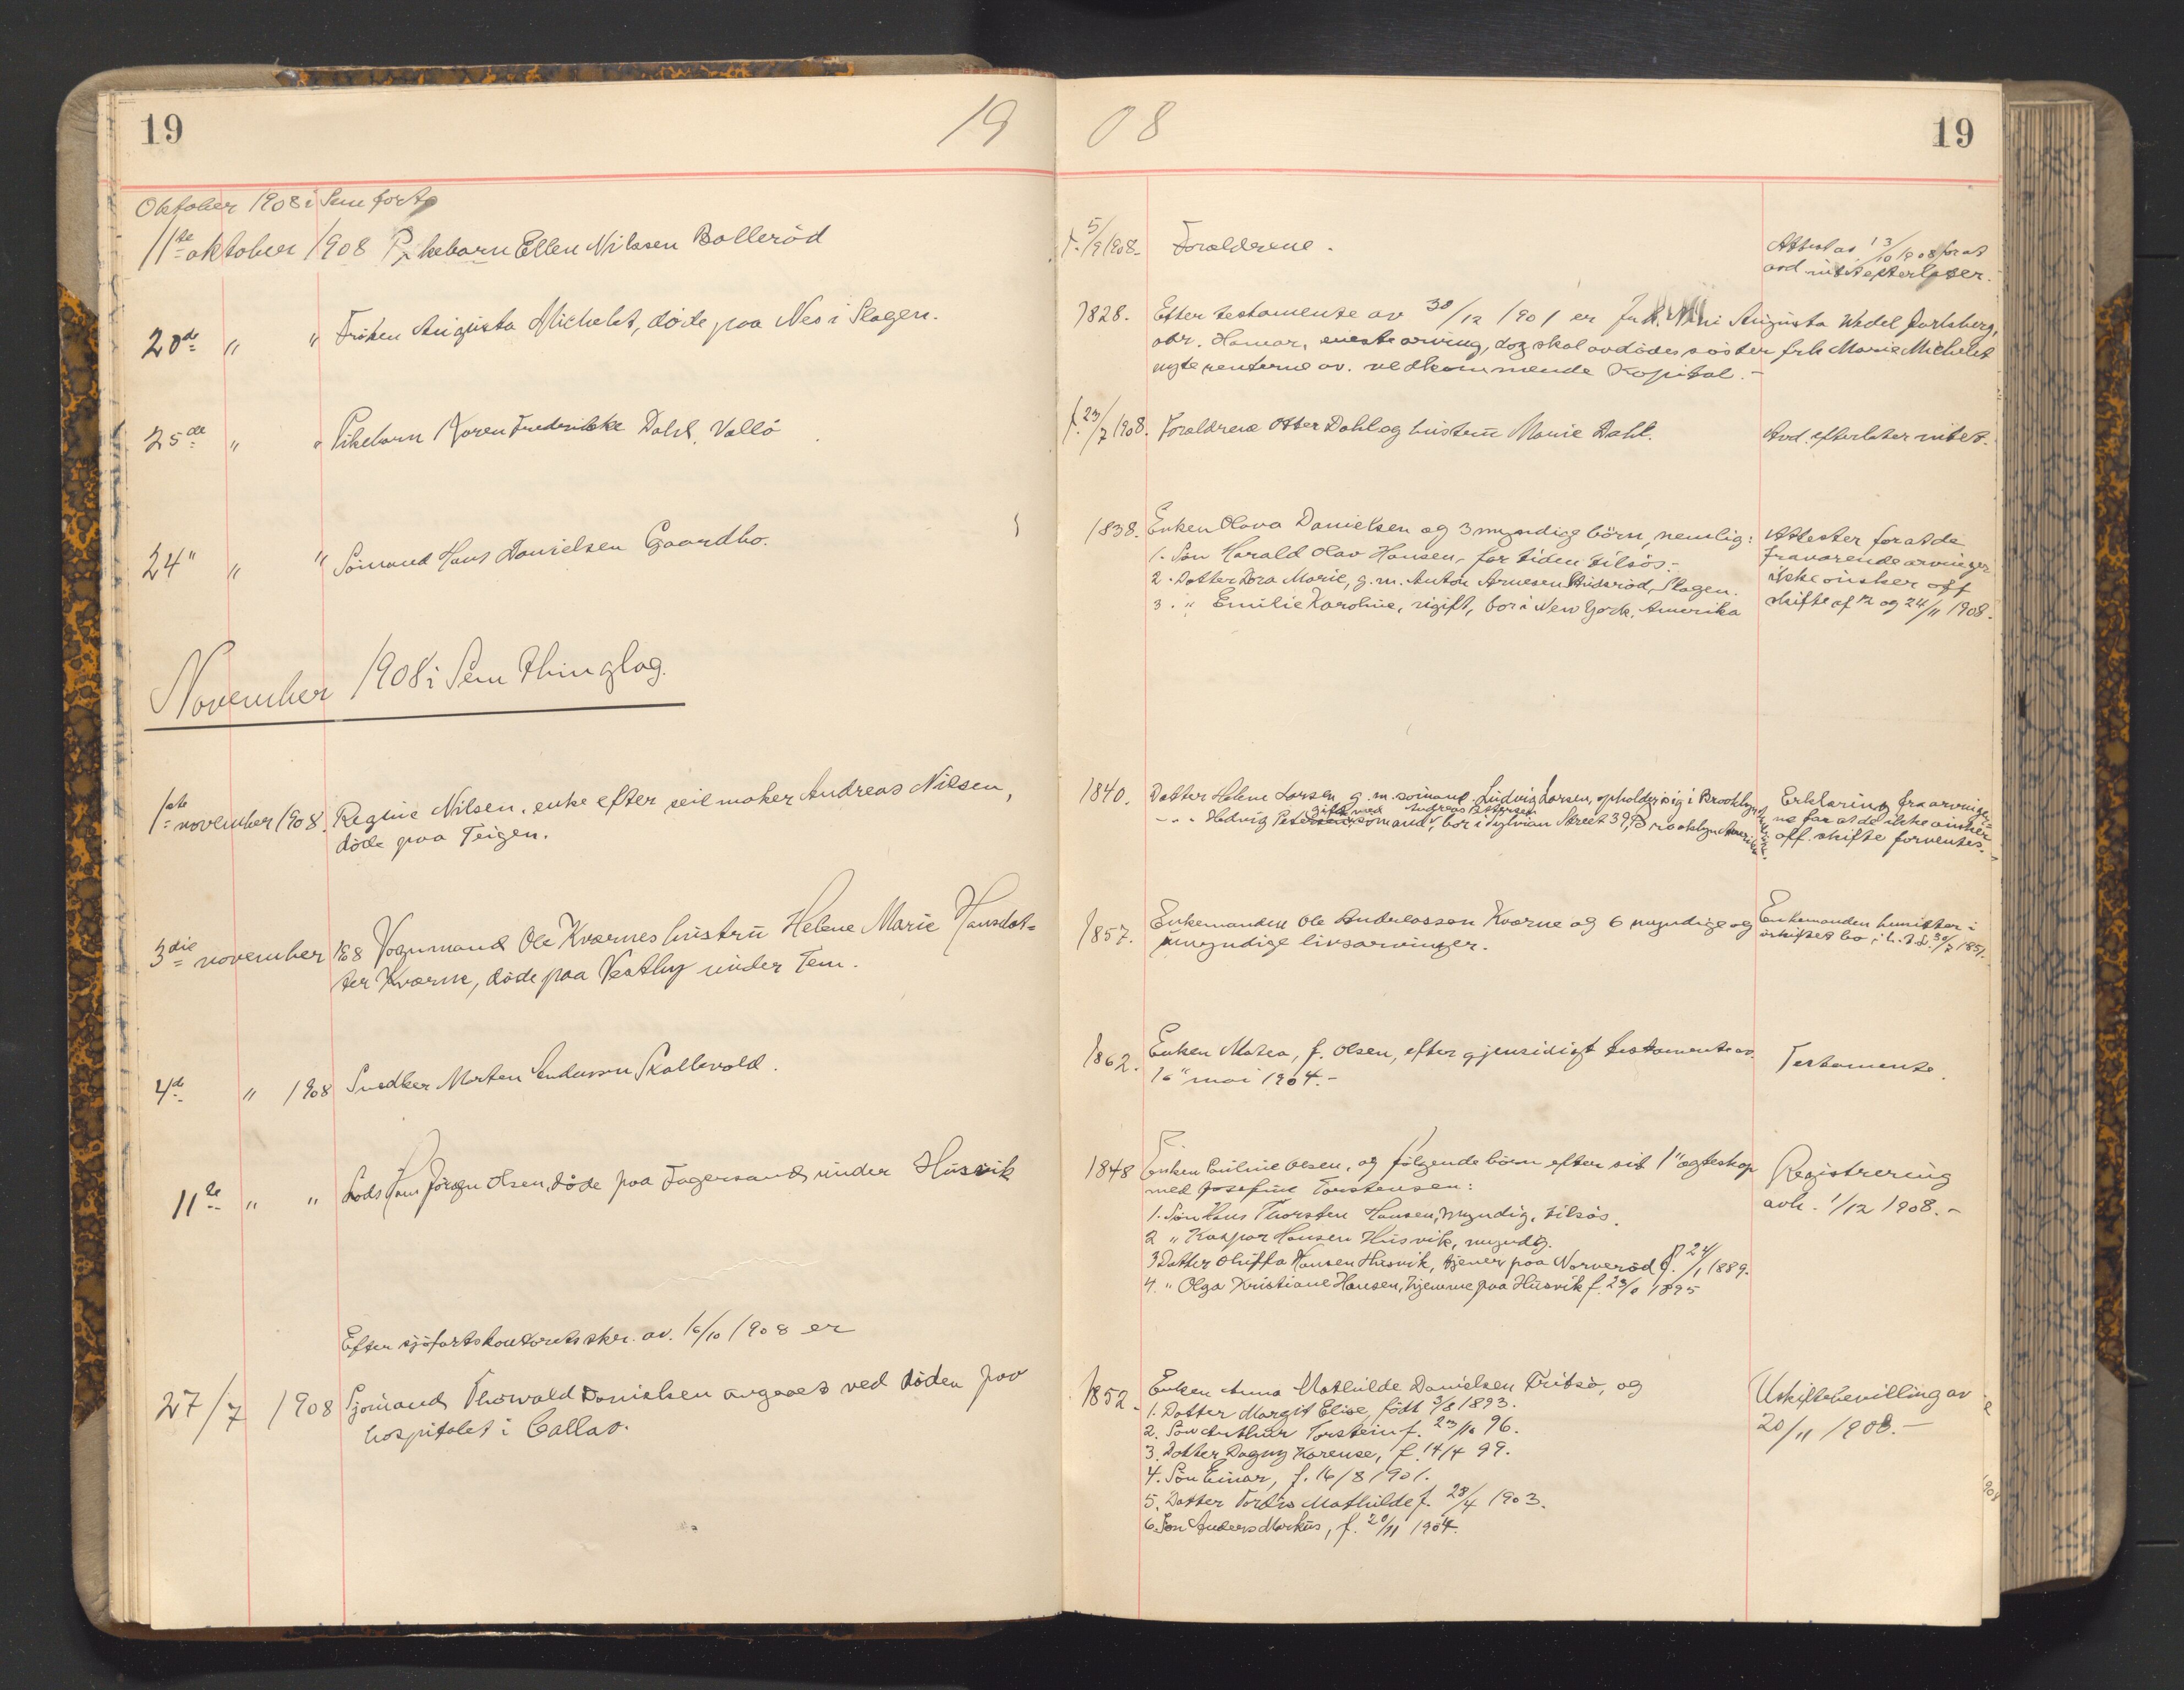 19
19
08
19
Oktober 1908 i Sem forts
11te oktober 1908 Pikebarn Ellen Nilssen Bolleröd
f. 5/9 1908. Foraldrene.
Attest av 13/10 1908 for at
avd. intet efterlater.
20de " " Fröken Augusta Michelet, döde paa Nes i Slagen.
1828. Efter testamente av 30/12 1901 er Augusta Wedel Jarlsberg,
adr. Hamar, eneste arving, dog skal avdödes söster frk Marie Michelet
nyte renterne av vedkommende kapital.-
25de " " Pikebarn Karen Fredrikke Dahl, Vallö
f. 23/7 1908. Foraldrene Otter Dahl og hustru Marie Dahl.
Avd. efterlater intet.
24" " " Sömand Hans Danielsen Gaardbo.
1838. Enken Olava Danielsen og 3 myndige börn, nemlig:
1. Sön Harald Olav Hansen, for tiden tilsös.-
2. Datter Dora Marie, g. m. Anton Arnesen, Slagen.
3. " Emilie Karoline, ugift, bor i New York, Amerika
Attester for at de
fravarende arvinger
ikke önsker off
skifte af 12 og 24/11 1908.
November 1908 i Sem Thinglag.
1ste november 1908. Regine Nilsen, enke efter seilmaker Andreas Nilsen,
döde paa Teigen.
1840. Datter Helene Larsen, g. m. sömand Ludvig Larsen, opholder sig i Brooklyn
gift med Andreas Pettersen
- " - Hedvig Petersen, sömand, bor i Sylvian Street 39, Brooklyn Amerika.
Erklaring fra arvinger-
ne for at de ikke önsker
off. skifte forventes.-
3die november 1908 Vognmand Ole Kværnes hustru Helene Marie Hansdat-
ter Kværne, döde paa Vestby under Fem.
1857. Enkemanden Ole Andreassen Kværne og 6 myndige og
umyndige livsarvinger.
Enkemanden hensitter i
uskiftet bo i h. t. l. 30/7 1851.
4de " 1908 Snedker Morten Andersen Skallevold.
1862. Enken Matea, f. Olsen, efter gjensidigt testamente av
16" mai 1904.-
Testamente.
11te " " Lods Hans Jörgen Olsen, döde paa Fagersand under Husvik
1848 Enken Pauline Olsen, og fölgende börn efter sit 1" ægteskap
med Josefine Torstensen:
1. Sön Hans Thorsten Hansen, myndig, tilsös.
2 " Kaspar Hansen Husvik, myndig.
3 Datter Oliffa Hansen Husvik, tjener paa Narveröd f. 24/1 1889.
4. " Olga Kristiane Hansen, hjemme paa Husvik f. 1895
Registrering
avh. 1/12 1908.-
Efter sjöfartskontorets skr. av. 16/10 1908 er
27/7 1908 Sjömand Thorvald Danielsen avgaaet ved döden paa
hospitalet i Callao.
1852. Enken Anna Mathilde Danielsen Fritsö, og
1. Datter Margit Elise, född 3/8 1893.
2. Sön Arthur Torstein f. 23/10 96.
3. Datter Dagny Karense, f. 14/4 99.
4. Sön Einar, f. 16/8 1901.
5. Datter Tordis Mathilde f. 28/4 1903.
6. Sön Anders Markus, f. 20/11 1904.
Uskiftebevilling av
20/11 1908.-